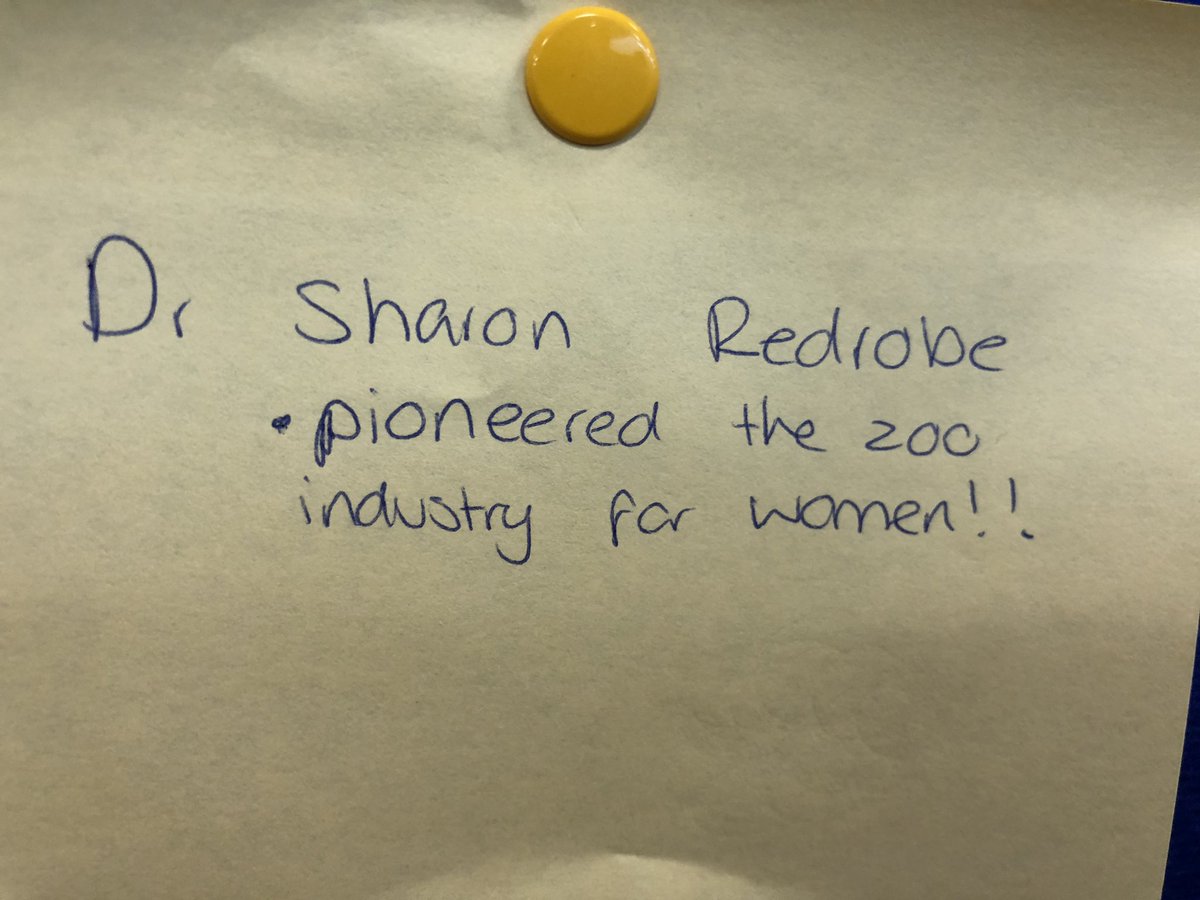 Dr Sharon Redrobe
• pioneered the zoo
industry for women!!